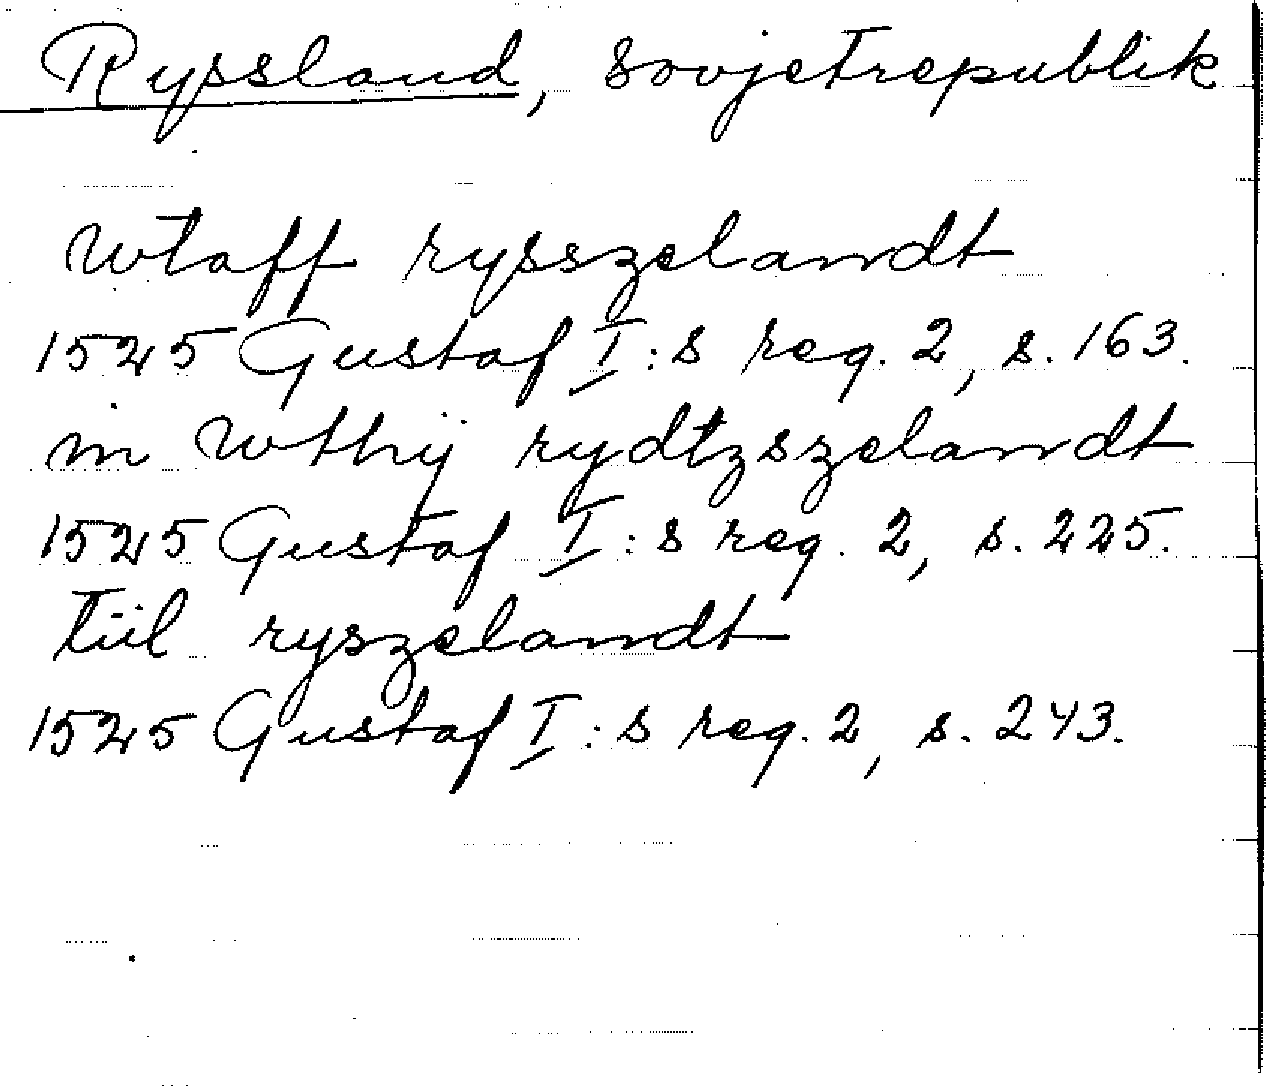 Ryssland, Sovjetrepublik
Wtaff rysszelandt
1525 Gustaf I:s reg. 2, s. 163.
in Wthij rydtzszelandt
1525 Gustaf I:s reg. 2, s. 225.
tiil ryszelandt
1525 Gustaf I:s reg. 2, s. 243.